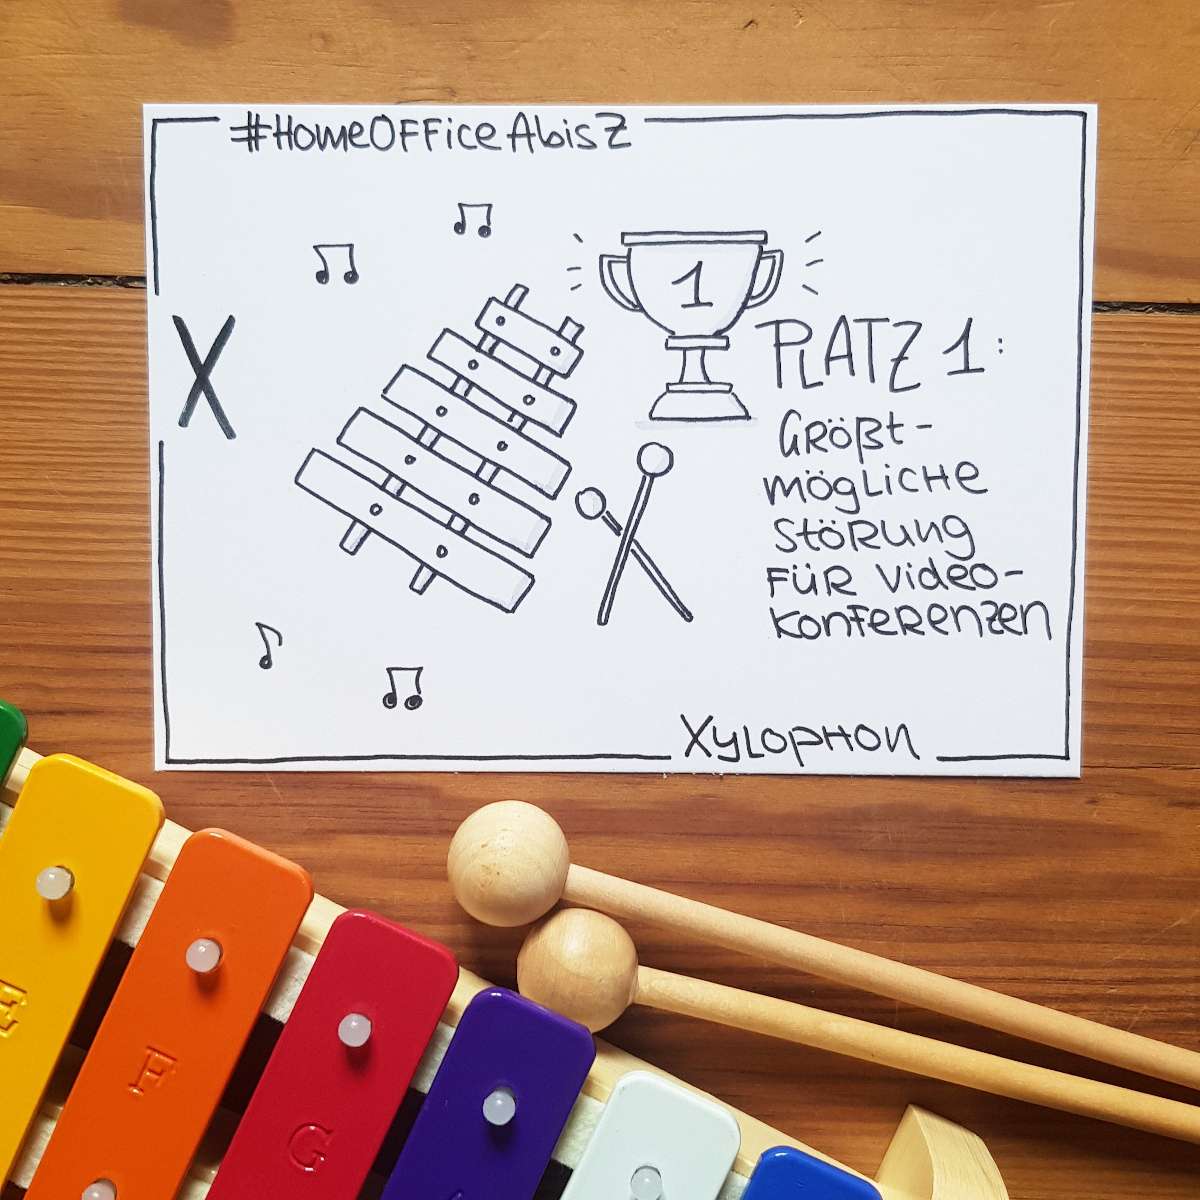 #HomeOFFiceAbisZ
1
X
PLATZ 1:
GRÖßt-
mögLiCHe
StÖRung
FÜR Video-
KonFeRenzen
XyLOPHOn
E
F
G